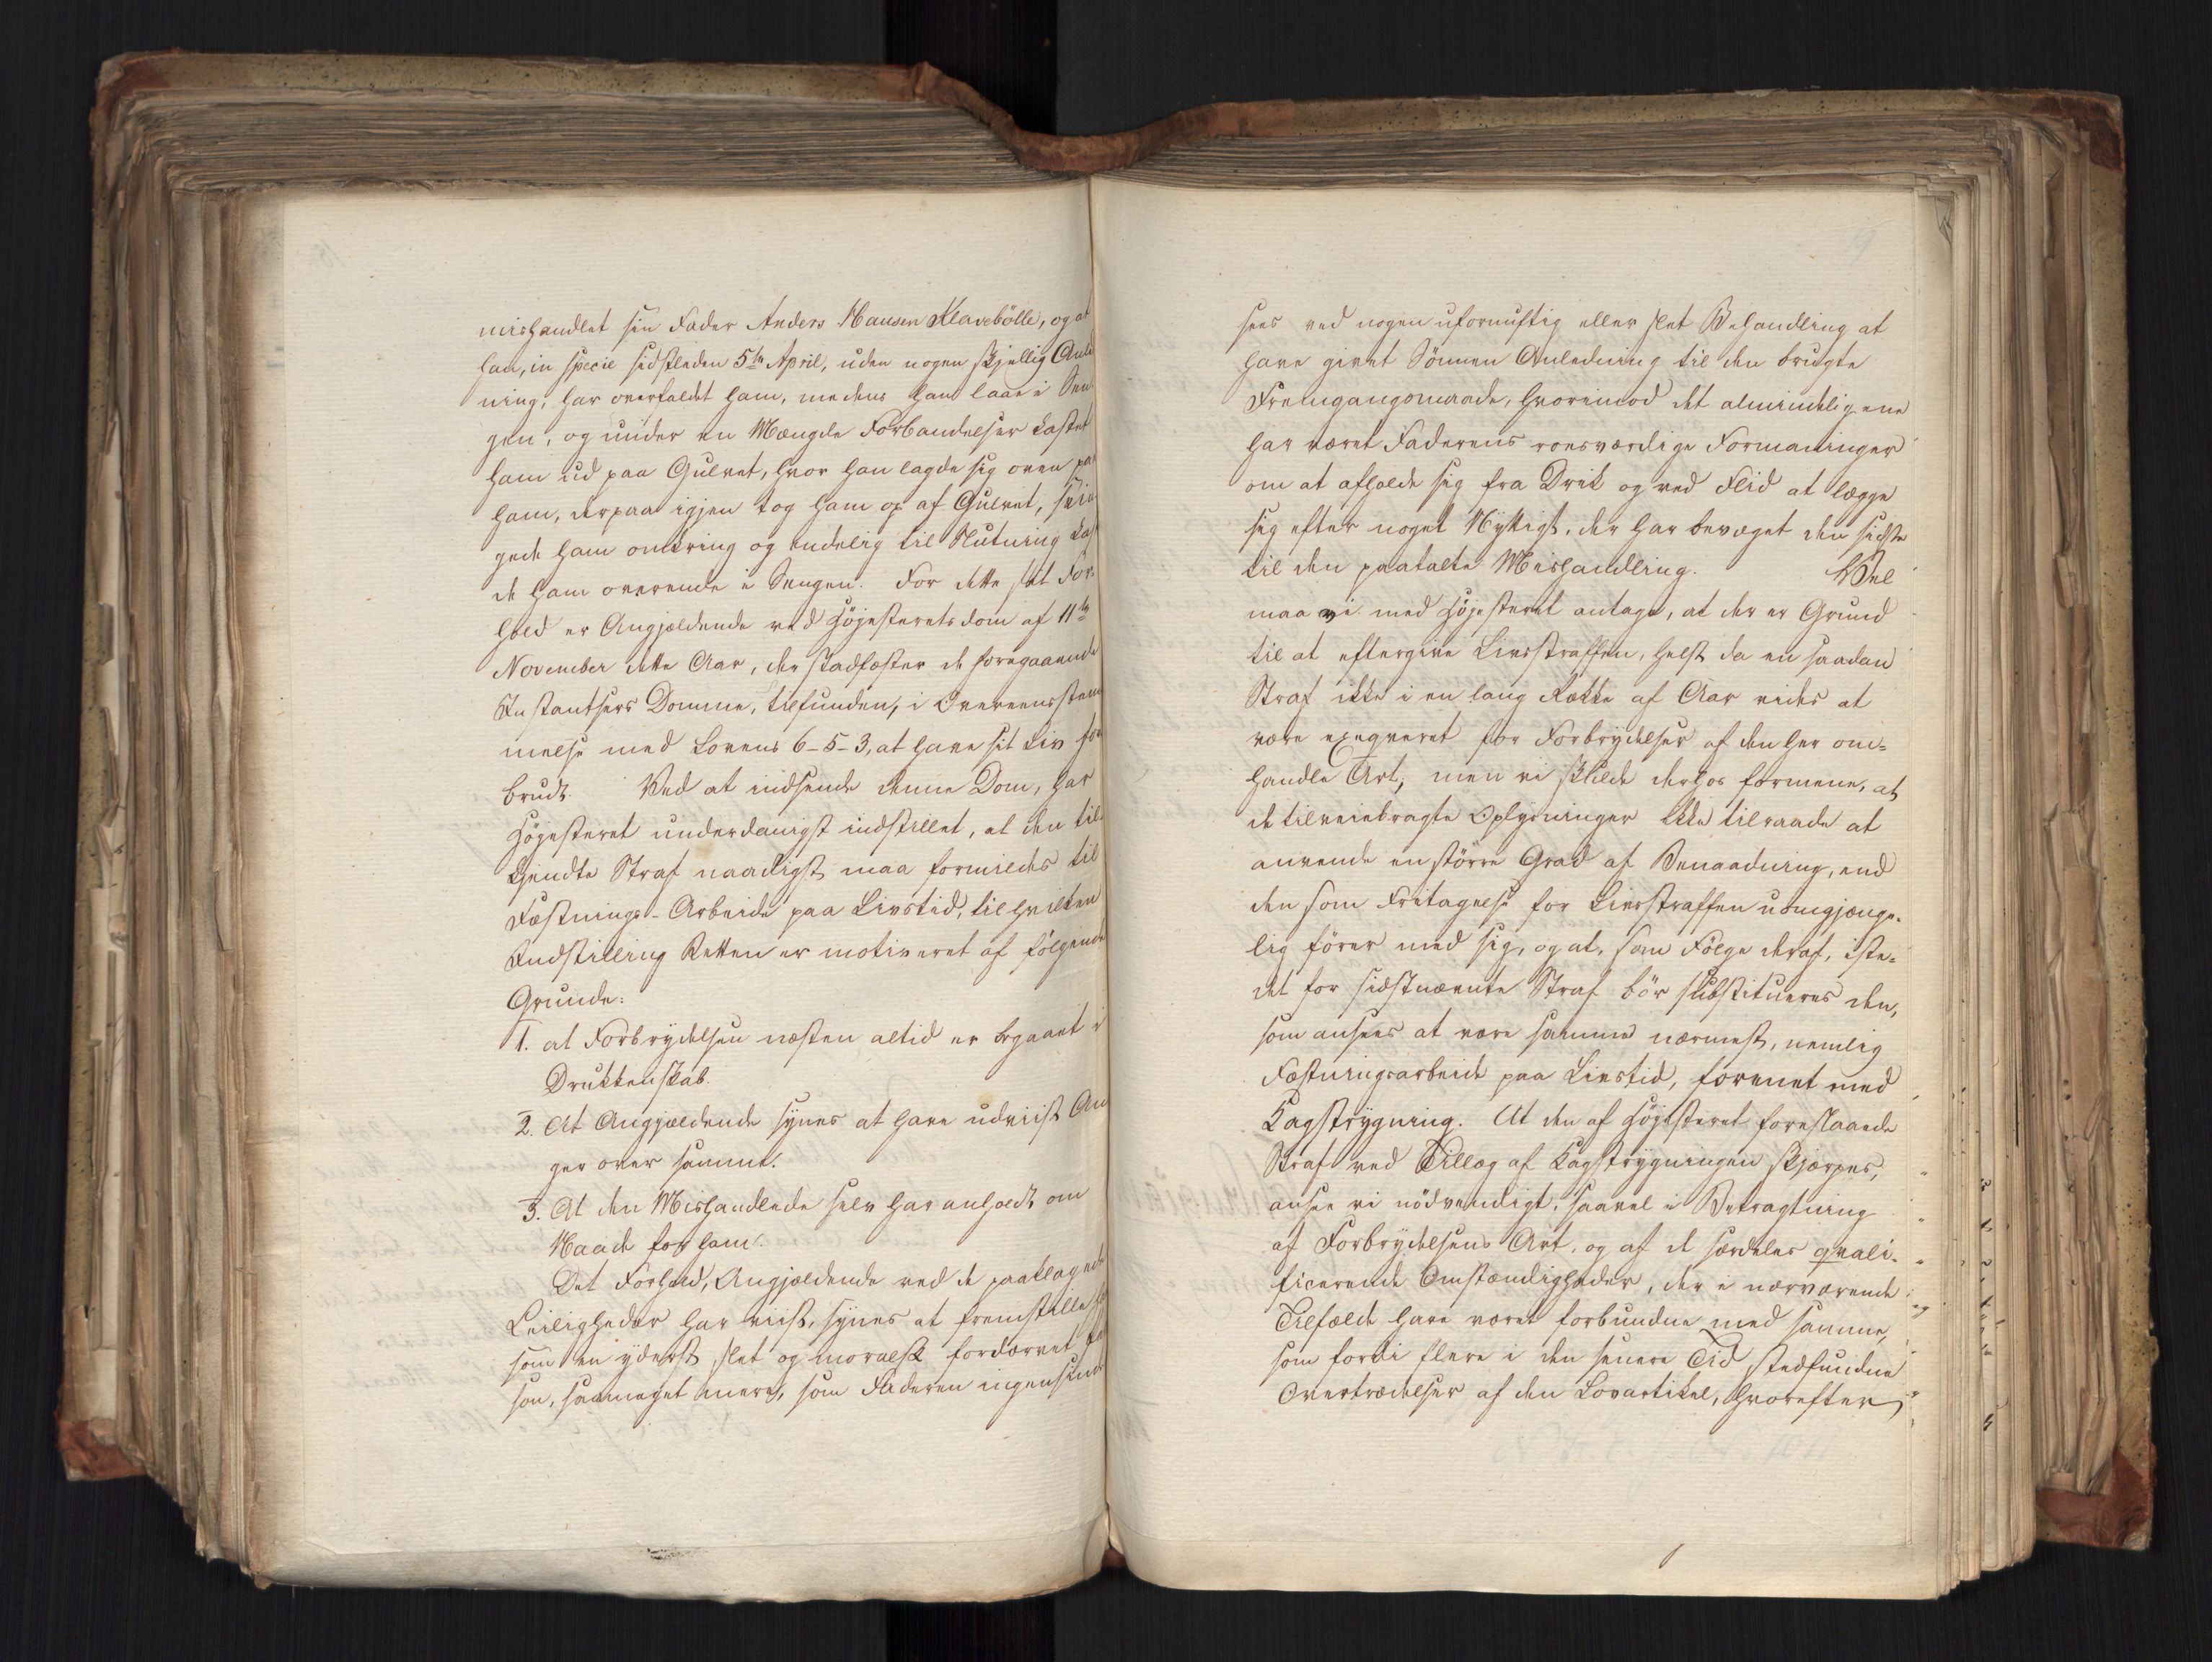 mishandlet sin Fader Anders Hansen Klavebölle, og at
han, in specie sidstleden 5te April, uden nogen skjellig Anle
ning, har overfaldet ham, medens han laae i Sen
gen, og under en Mængde Forbandelser kastet
ham ud paa Gulvet, hvor han lagde sig oven paa
ham, derpaa igjen tog ham op af Gulvet, svin
gede ham omkring og endelig til Slutning kas
de ham overende i Sengen. For dette slet For-
hold er Angjældende ved Höjesteretsdom af 11te
November dette Aar, der stadfæster de foregaaende
Instantsers Domme, tilfunden, i Overeensstem
melse med Lovens 6-5-3, at have sit Liv for
brudt. Ved at indsende denne Dom, har
Höjesteret underdanigst indstillet, at den til-
kjendte Straf naadigst maa formildes til
Fæstnings-Arbeide paa Livstid, til hvilken
Indstilling Retten er motiveret af følgende
Grunde:
1. at Forbrydelsen næsten altid er begaaet i
Drukkenskab.
2. At Angjældende synes at have udviist An
ger over samme.
3. At den Mishandlede selv har anholdt om
Naade for ham.
Det Forhold, Angjældende ved de paaklagede
Leiligheder har viist, synes at fremstille
som en yderst slet og moralsk fordærvet
son, saameget mere, som Faderen ingensinde
sees ved nogen ufornuftig eller slet Behandling at
have givet Sönnen Anledning til den brugte
Fremgangsmaade, hvorimod det almindeligene
har været Faderens roesværdige Formaninger
om at afholde sig fra Drik og ved Flid at lægge
sig efter noget Nyttigt, der har bevæget den sidste
til den paatalte Mishandling. Vel
maa vi med Höjesteret antage, at der er Grund
til at eftergive Livsstraffen, helst da en saadan
Straf ikke i en lang Række af Aar vides at
være exeqveret for Forbrydelser af den her om-
handle Art; men vi skulde derhos formene, at
de tilveiebragte Oplysninger ikke tilraade at
anvende en större Grad af Benaadning, end
den som Fritagelse for Livsstraffen uomgjænge-
lig förer med sig, og at, som Fölge deraf, iste-
det for sidstnævnte Straf bör substitueres den,
som ansees at være samme nærmest, nemlig
Fæstningsarbeide paa Livstid, forenet med
Kagstrygning. At den af Höjesteret foreslaaede
Straf ved Tillæg af Kagstrygningen skjærpes,
ansee vi nödvendigt, saavel i Betragtning
af Forbrydelsens Art, og af de særdeles qvali-
ficerende Omstændigheder, der i nærværende
Tilfælde have været forbundne med samme,
som fordi flere i den senere Tid stedfundne
Overtrædelser af den Lovartikel, hvorefter